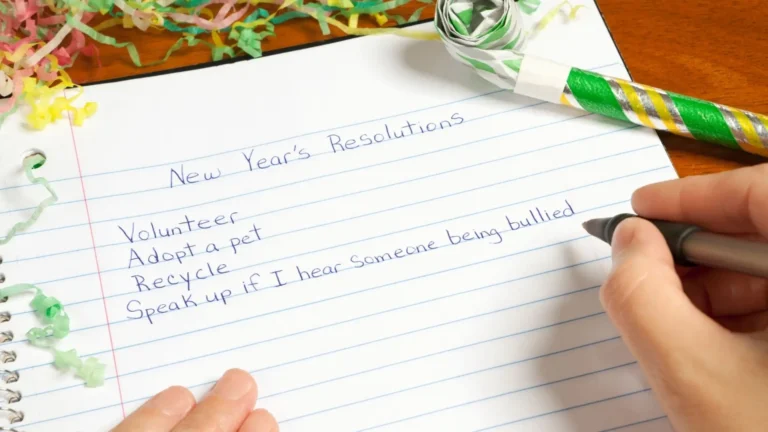 New Year's Resolutions
Volunteer
Adopt a pet
Recycle
Speak up if I hear someone being bullied